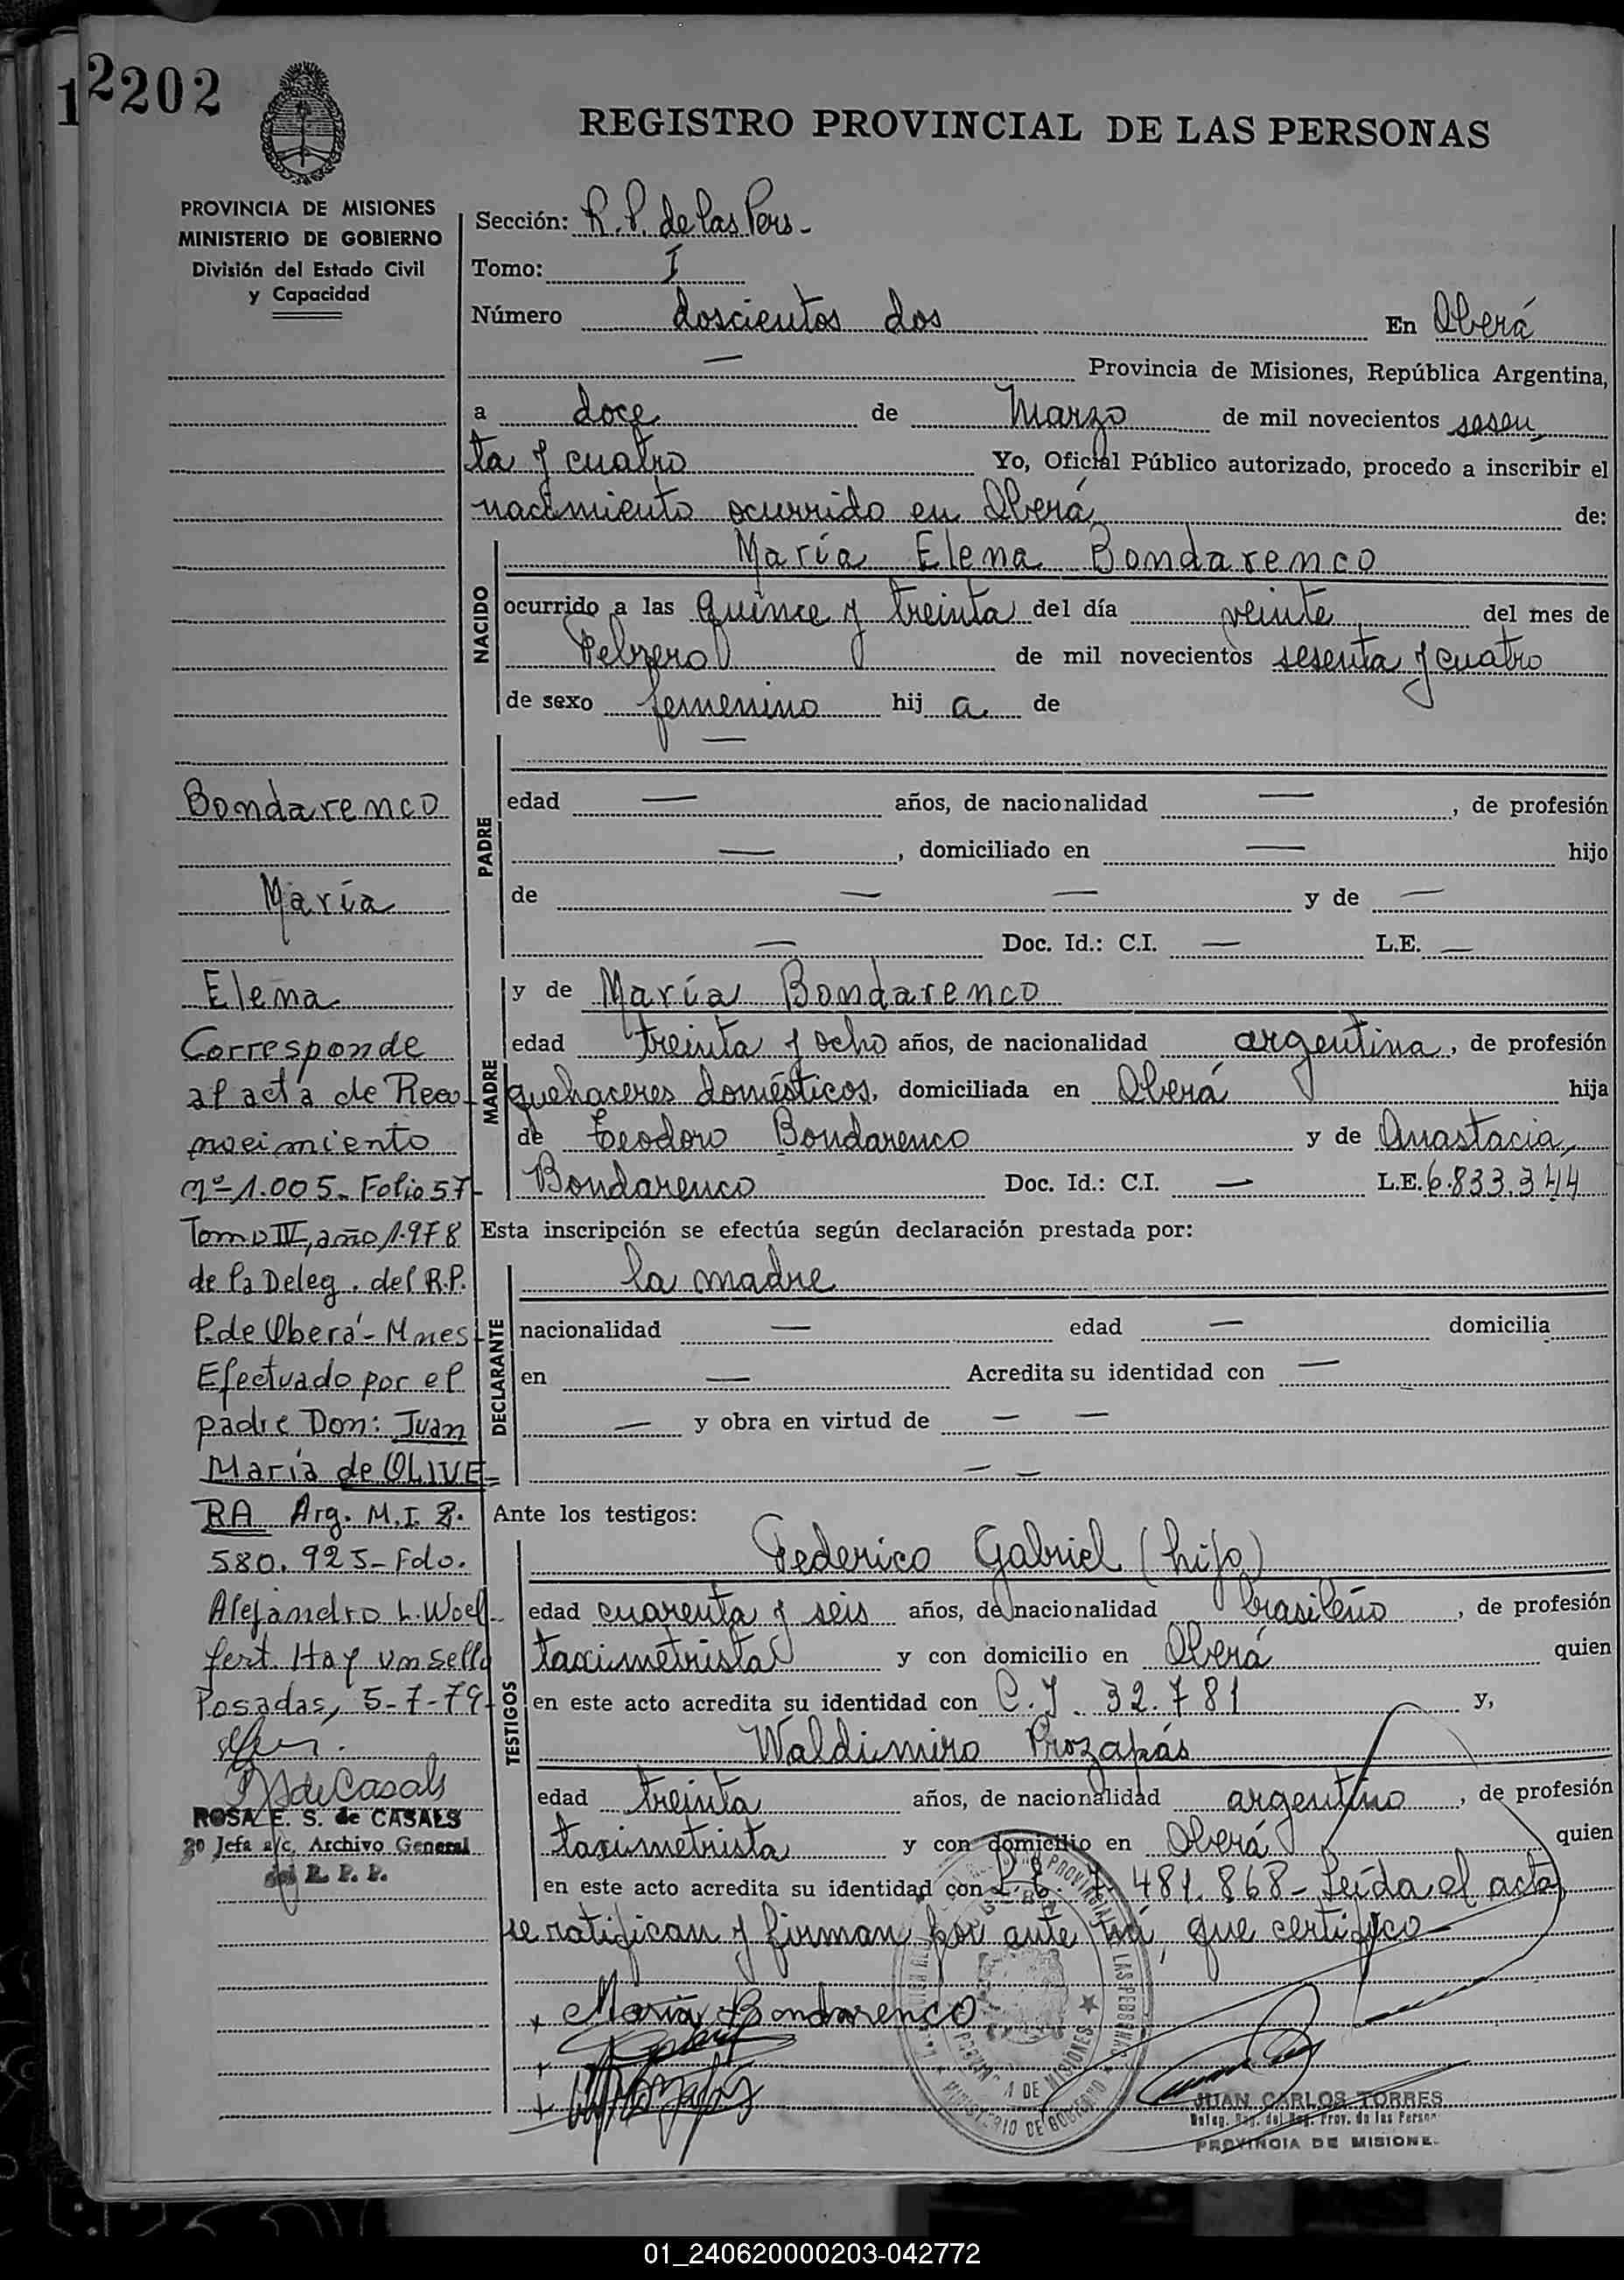 1
2202
REGISTRO PROVINCIAL DE LAS PERSONAS
PROVINCIA DE MISIONES
MINISTERIO DE GOBIERNO
División del Estado Civil
y Capacidad
Sección: R. P. de las Pers.-
Tomo: I
Número doscientos dos En Oberá
— Provincia de Misiones, República Argentina,
a doce de Marzo de mil novecientos sesen
ta y cuatro Yo, Oficial Público autorizado, procedo a inscribir el
nacimiento ocurrido en Oberá de:
NACIDO
María Elena Bondarenco
ocurrido a las quince y treinta del día veinte del mes de
Febrero de mil novecientos sesenta y cuatro
de sexo femenino hij a de
PADRE
—
edad — años, de nacionalidad —, de profesión
—, domiciliado en — hijo
de — — y de —
— Doc. Id.: C.I. — L.E. —
MADRE
y de María Bondarenco
edad treinta y ocho años, de nacionalidad argentina, de profesión
quehaceres domésticos, domiciliada en Oberá hija
de Teodoro Bondarenco y de Anastacia
Bondarenco Doc. Id.: C.I. — L.E. 6.833.344
Esta inscripción se efectúa según declaración prestada por:
DECLARANTE
la madre
nacionalidad — edad — domicilia
en — Acredita su identidad con —
— y obra en virtud de — —
— —
Ante los testigos:
TESTIGOS
Federico Gabriel (hijo)
edad cuarenta y seis años, de nacionalidad brasileño, de profesión
taximetrista y con domicilio en Oberá quien
en este acto acredita su identidad con C.I. 32.781 y,
Waldimiro Prozapás
edad treinta años, de nacionalidad argentino, de profesión
taximetrista y con domicilio en Oberá quien
en este acto acredita su identidad con L.E. 7.481.868- Leída el acta
se ratifican y firman por ante mí, que certifico
+ María Bondarenco
+
+
JUAN CARLOS TORRES
Deleg. Reg. del Reg. Prov. de las Person
PROVINCIA DE MISIONE.
Bondarenco
María
Elena
Corresponde
al acta de Reco-
nocimiento
nº-1.005- Folio 57-
Tomo IV, año 1.978
de la Deleg. del R.P.
P. de Oberá- Mnes-
Efectuado por el
padre Don: Juan
María de OLIVE=
RA Arg. M.I. 7.
580.925- Fdo.
Alejandro L. Woel-
fert. Hay un sello
Posadas, 5-7-79-
de Casals
ROSA E. S. de CASALS
Jefa a/c. Archivo General
del R. P. P.
PROVINCIAL DE LAS PERSONAS
PROVINCIA DE MISIONES
MINISTERIO DE GOBIERNO
01_240620000203-042772